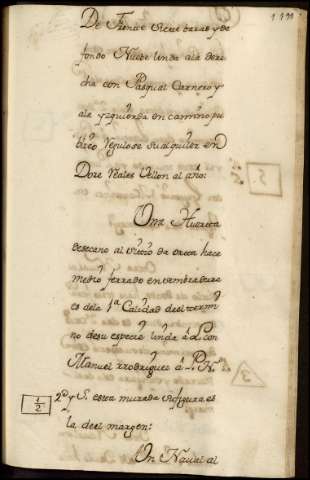 De Frente Siete baras y de
fondo Nuebe linda ala dere
cha con Pasqual Carnero y
ala yzquierda en camino pu
blico regulose su alquiler en
Doze Reales Vellon al año:
Una Huerta
de secano al sittio da orta hace
medio ferrado en sembradura
es dela 1ª Calidad deel termi
no desu especie linda á L. con
Manuel rrodriguez á P. N.
2º y S. esta murada su figura es
1/2
la deel margen:
Un Naval al